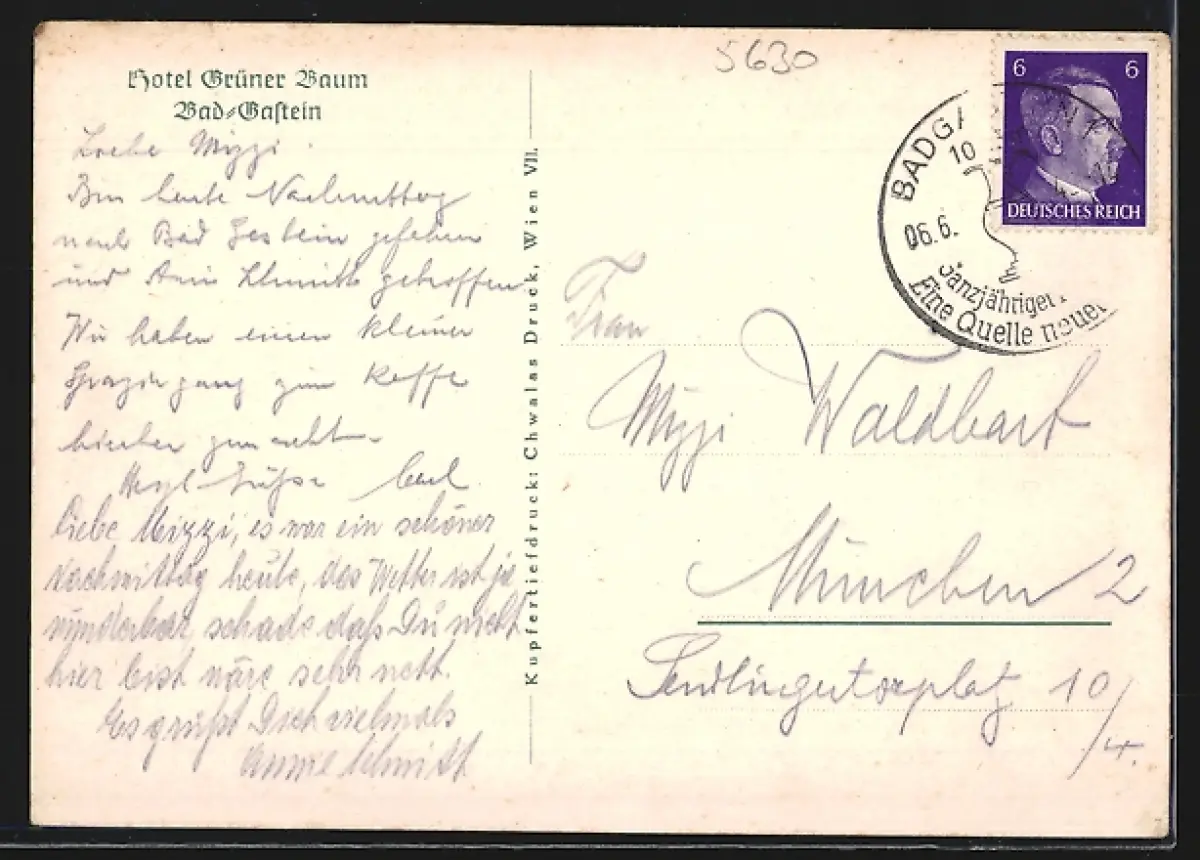 Hotel Grüner Baum
Bad-Gastein
Liebe Mizzi.
Bin heute Nachmittag
nach Bad Gastein gefahren
und Anni Schmitt getroffen.
Wir haben einen kleinen
Spaziergang zum Kaffe
hierher gemacht.
Herzl. Grüsse
Liebe Mizzi, es war ein schöner
Nachmittag heute, das Wetter ist ja
wunderbar, schade daß Du nicht
hier bist wäre sehr nett.
Es grüßt Dich vielmals
Annie Schmitt
Kupfertiefdruck: Chwalas Druck, Wien VII.
5630
6 6
DEUTSCHES REICH
BADGA
10
06.6.
Ganzjähriger
Eine Quelle neuer
Frau
Mizzi Waldbart
München 2
Sendlingertorplatz 10/4.